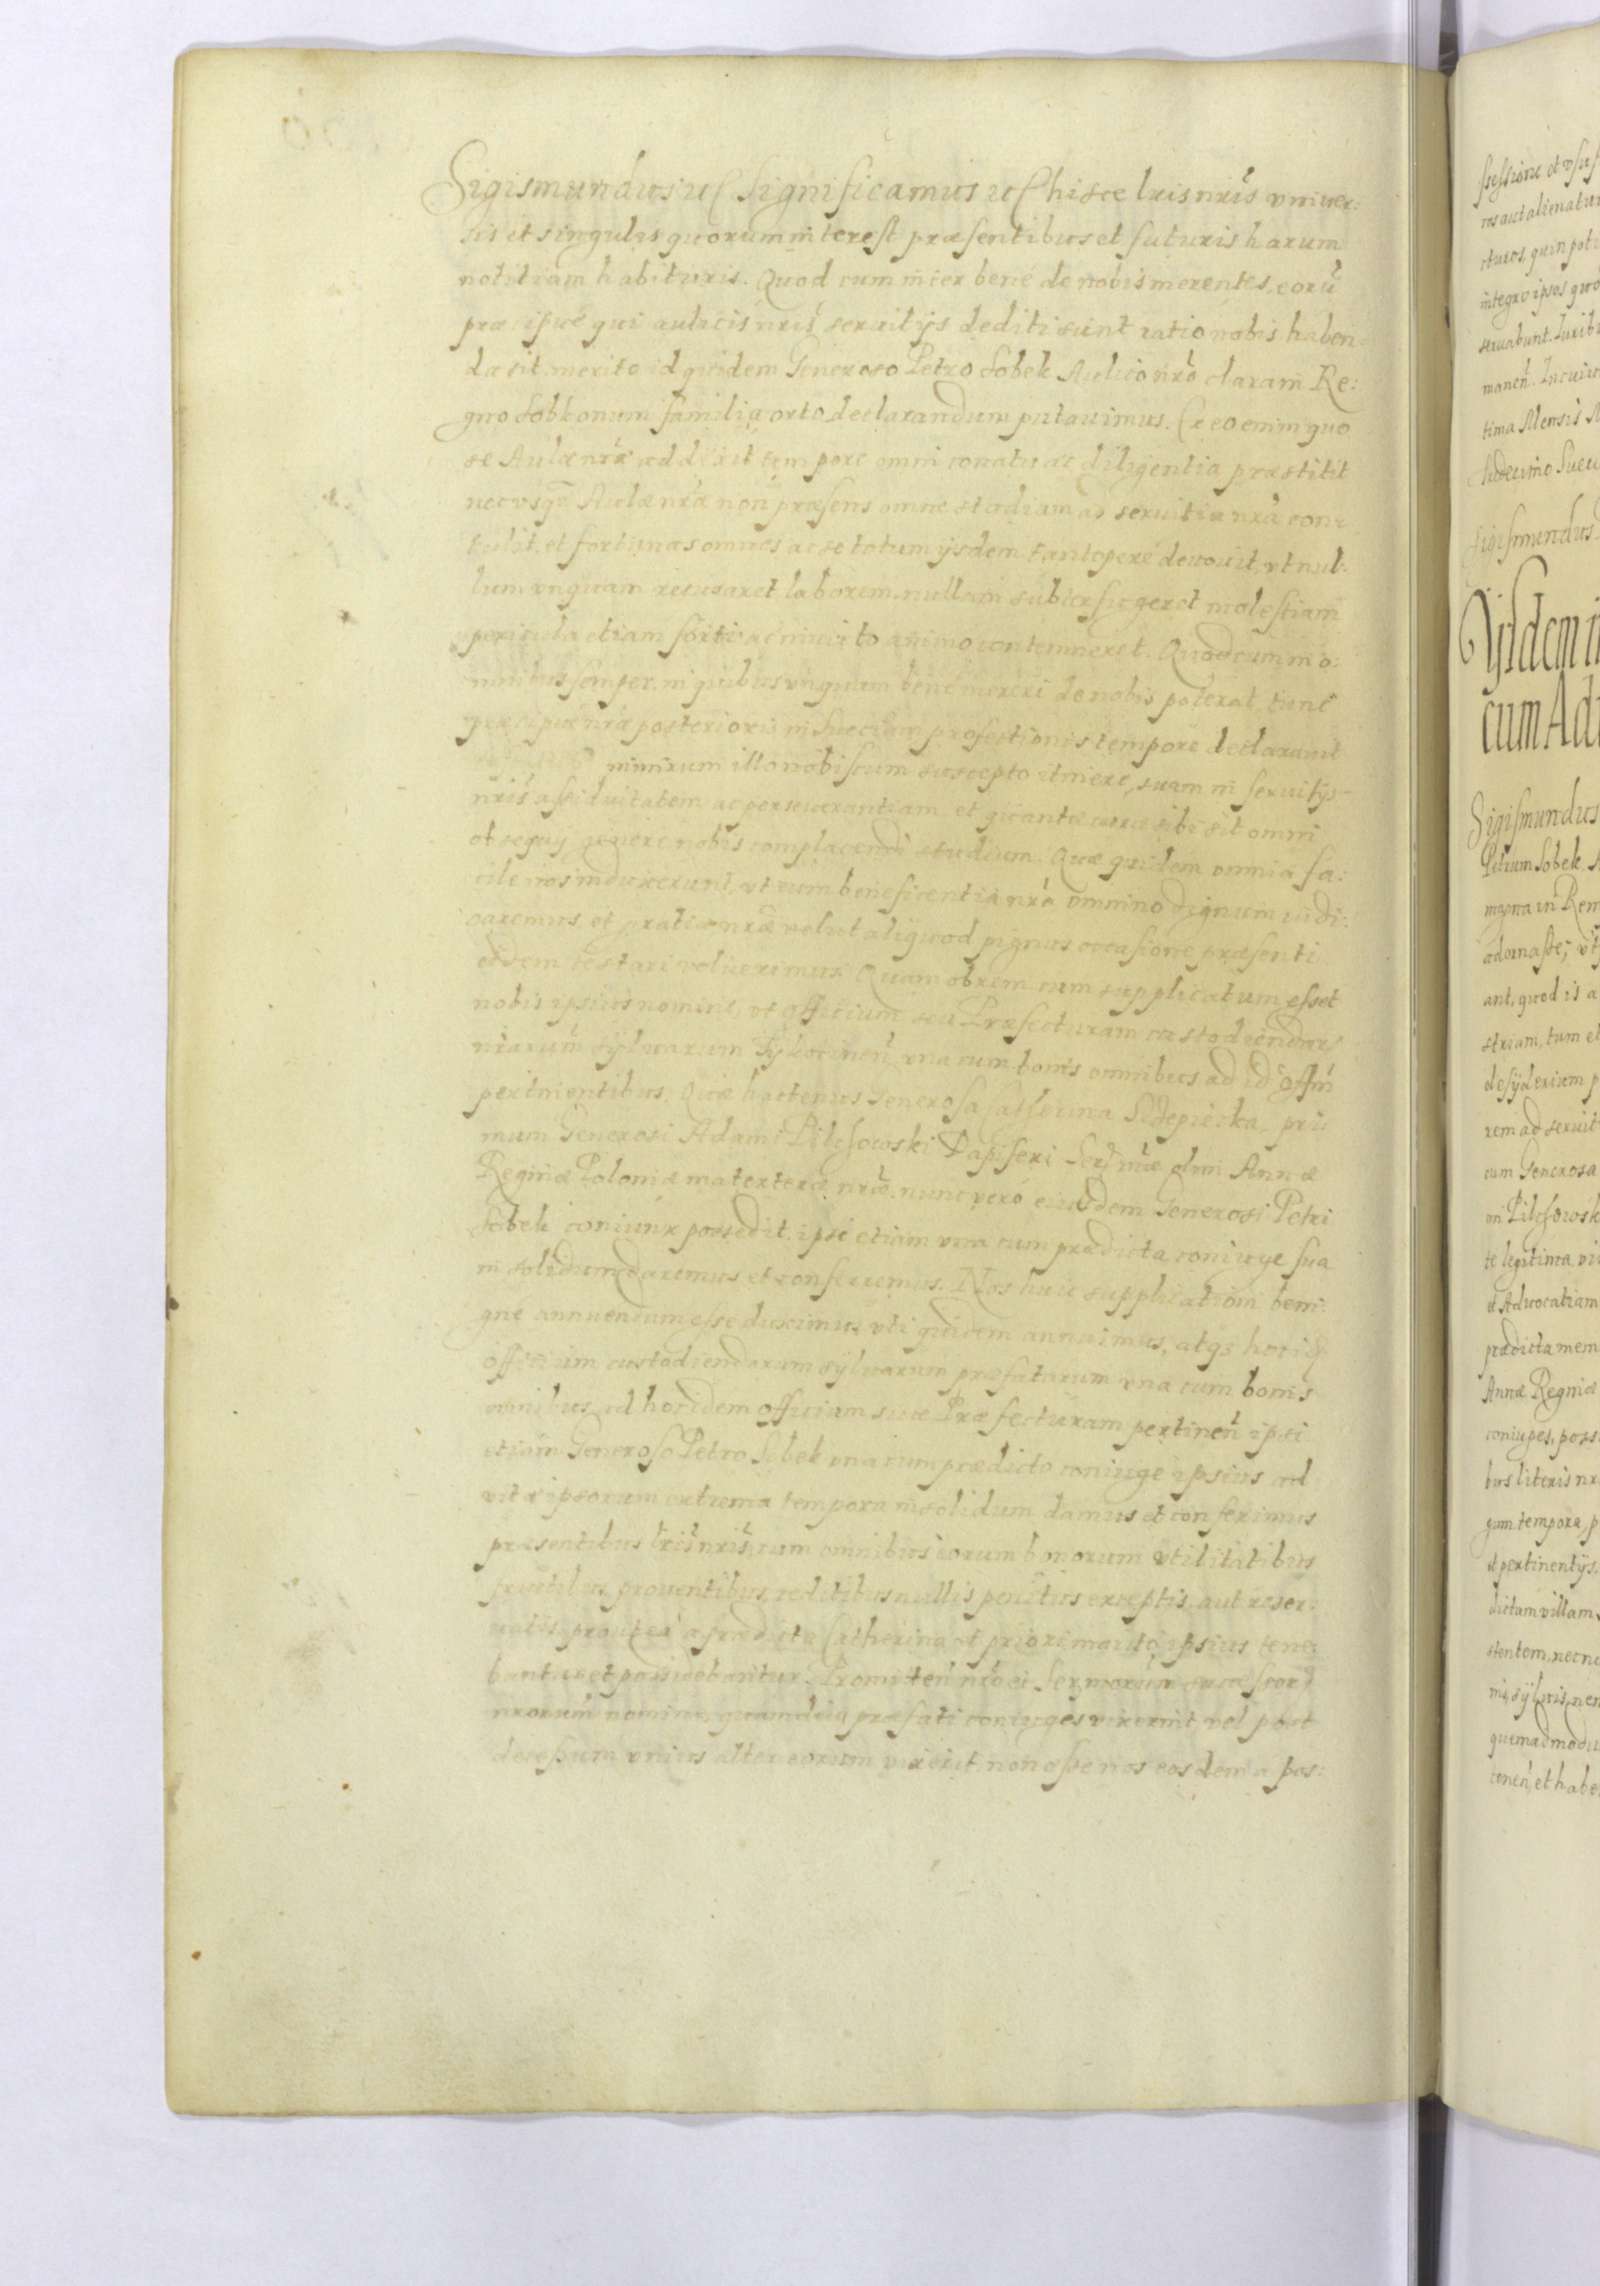 Sigismundus etc Significamus etc hisce lris nris vniuer:
sis et singulis quorum interest præsentibus et futuris harum
notitiam habituris. Quod cum inter bene de nobis merentes, eorũ
præcipuè qui aulicis nris seruitijs dediti sunt ratio nobis haben:
da sit. merito id quidem Generoso Petro Sobek Aulico nro claram Re:
gno Sobkonum familia orto declarandum putauimus. Ex eo enim quo
se Aulæ nræ addixit tempore omni conatu ac diligentia præstitit
nec vsq Aulæ nræ non præsens omne studium ad seruitia nra con:
tulit, et fortunas omnes ac se totum ijsdem tantopere deuouit, vt nul:
lum vnquam recusaret laborem, nullam subterfugeret molestiam
pericula etiam forti ac inuicto animo contemneret. Quod cum in o:
mnibus semper, in quibus vnquam bene mereri de nobis poterat, tunc
præcipue nræ posterioris in Sueciam profectionis tempore declarauit
nimirum illo nobiscum suscepto itinere, suam in seruitijs
nris assiduitatem ac perseuerantiam et quantæ curæ sibi sit omni
obsequij genere nobis complacendi studium. Quæ quidem omnia fa:
cile nos induxerunt, vt eum beneficentia nra omnino dignum iudi:
caremus et gratiæ nræ velut aliquod pignus occasione præsenti
eidem testari voluerimus. Quam obrem cum supplicatum esset
nobis ipsius nomine, vt officium seu Præfecturam custodiendar
nrarum syluarum Tykocinen, vna cum bonis omnibus ad id offm
pertinentibus. Quæ hactenus Generosa Catherina pri:
mum Generosi Adami Pilchowski Dapiferi Sermæ olim Annæ
Reginæ Poloniæ materteræ nræ, nunc vero eiusdem Generosi Petri
Sobek coniunx possedit, ipsi etiam vna cum prædicta coniuge sua
in solidum daremus et conferremus. Nos huic supplicationi beni:
gne annuendum esse duximus, vti quidem annuimus, atq hocid
officium custodiendarum syluarum præfatarum vna cum bonis
omnibus ad hoc idem officium siue Præfecturam pertinen ipsi
etiam Generoso Petro Sobek vna cum prædicto coniuge ipsius ad
vitæ ipsorum extrema tempora in solidum damus et conferimus
præsentibus lris nris, cum omnibus eorum bonorum vtilitatibus
fructibus, prouentibus, reditibus nullis penitus exceptis, aut reser:
uatis, prout ea a prædicta Catherina et priori marito ipsius tene:
bantur et possidebantur. Promitten nro et Sermorum successor
nrorum nomine, quamdiu præfati coniuges vixerint, vel post
decessum vnius alter eorum vixerit, non esse nos eosdem a pos:
ssessione et vsuf
ros aut alienatur
cturos, quin poti
integro ipsos quo
seruabunt. Iurib
manen. In cuius
tima Mensis
Sigismundus
Ijsdem
cum Ad
Sigismundus
Petrum Sobek
magna in Rem
ant, quod is a
striam, tum et
desyderium p
rem ad seruit
cum Generosa
ni Pilchowsk
te legitima
et Aduocatiam
prædicta mem
Annæ Reginæ
coniuges, poss
bus literis nr
gam tempora, p
et pertinentijs,
dictam villam
stentem, necno
nis, syluis, nem
quemadmodu
tonen, et habe